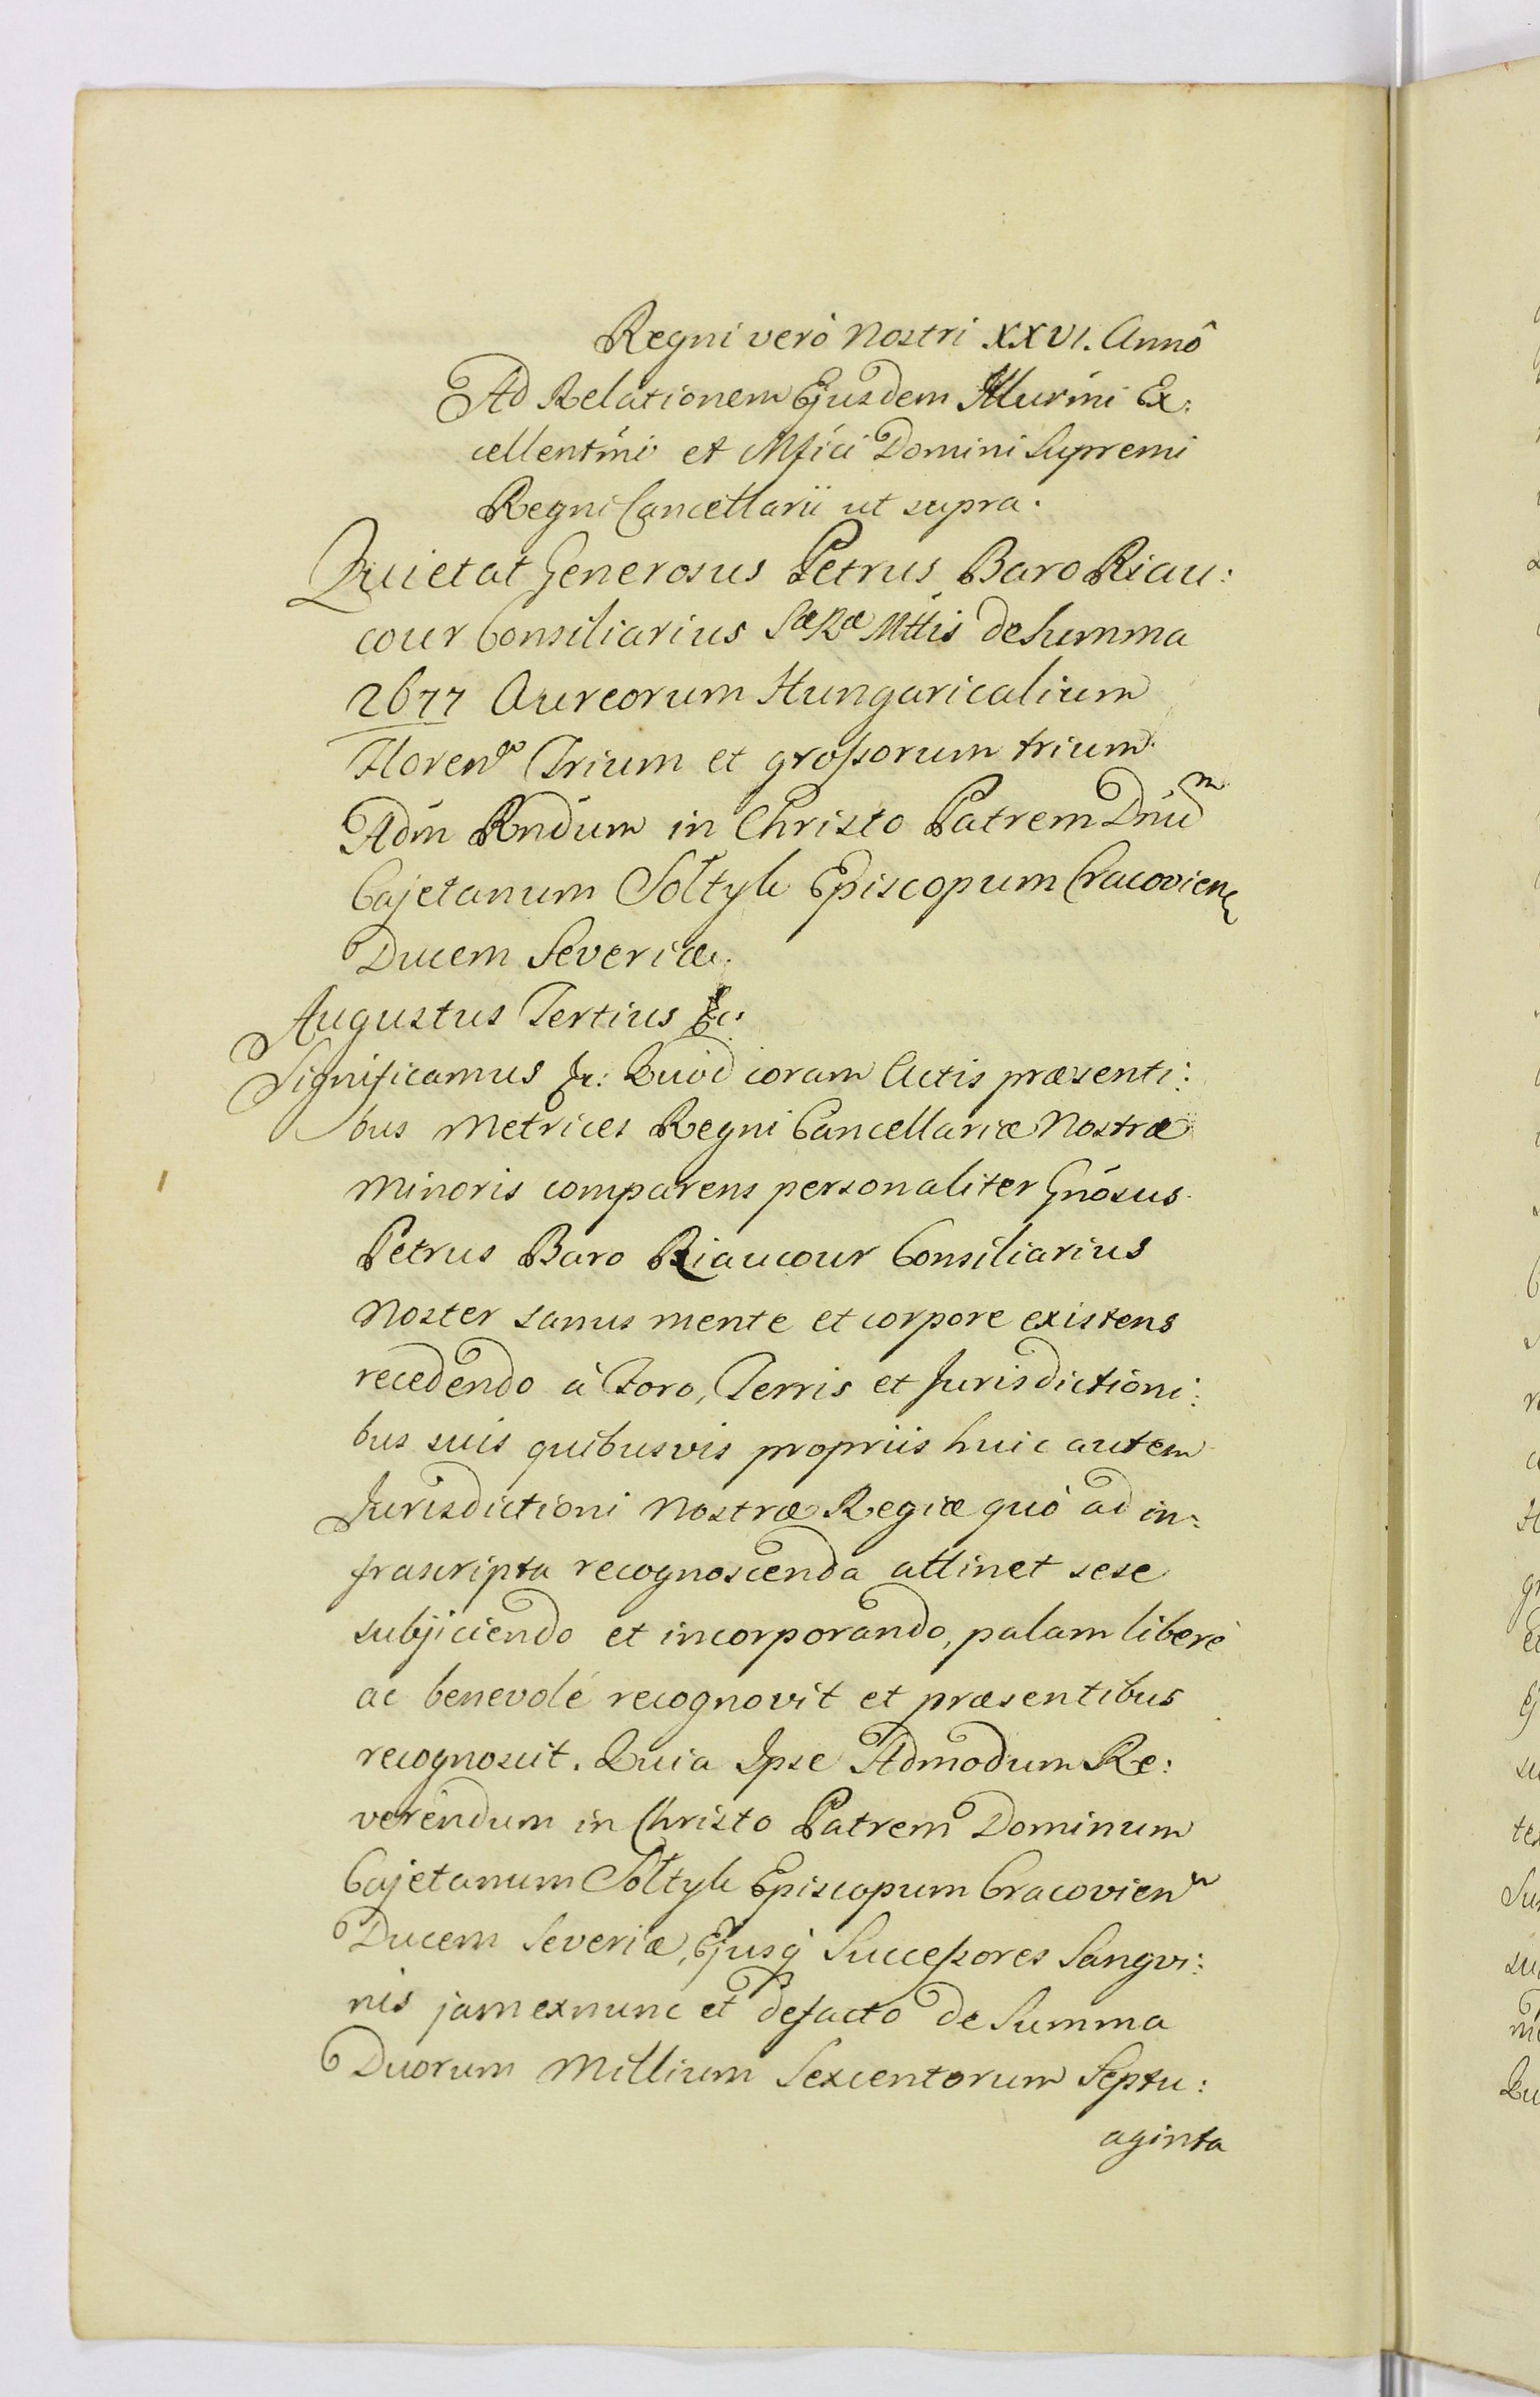 Regni verò Nostri XXVI. Annô
Ad Relationem Ejusdem Illurimi Ex:
cellentmi et Mfici Domini Supremi
Regni Cancellarii ut supra.
Quietat Generosus Petrus Baro Riau:
cour Consiliarius Sæ Ræ Mttis de Summa
2677 Aureorum Hungaricalium
Floren Trium et grossorum trium
Adm Rndum in Christo Patrem Dnum
Cajetanum Sołtyk Episcopum Cracovien
Ducem Severiæ.
Augustus Tertius &c:
Significamus &c: Quod coram Actis præsenti:
bus Metrices Regni Cancellariæ Nostræ
Minoris comparens personaliter Gnosus
Petrus Baro Riaucour Consiliarius
Noster sanus mente et corpore existens
recedendo à Foro, Terris et Jurisdictioni:
bus suis quibusvis propriis huic autem
Jurisdictioni Nostræ Regiæ quò ad in:
frascripta recognoscenda attinet sese
subjiciendo et incorporando, palam liberè
ac benevolé recognovit et præsentibus
recognoscit. Quia Ipse Admodum Re:
verendum in Christo Patrem Dominum
Cajetanum Sołtyk Episcopum Cracovien
Ducem Severiæ, Ejusq Successores Sangvi:
nis jam ex nunc et de facto de Summa
Duorum Millium Sexcentorum Septu:
aginta